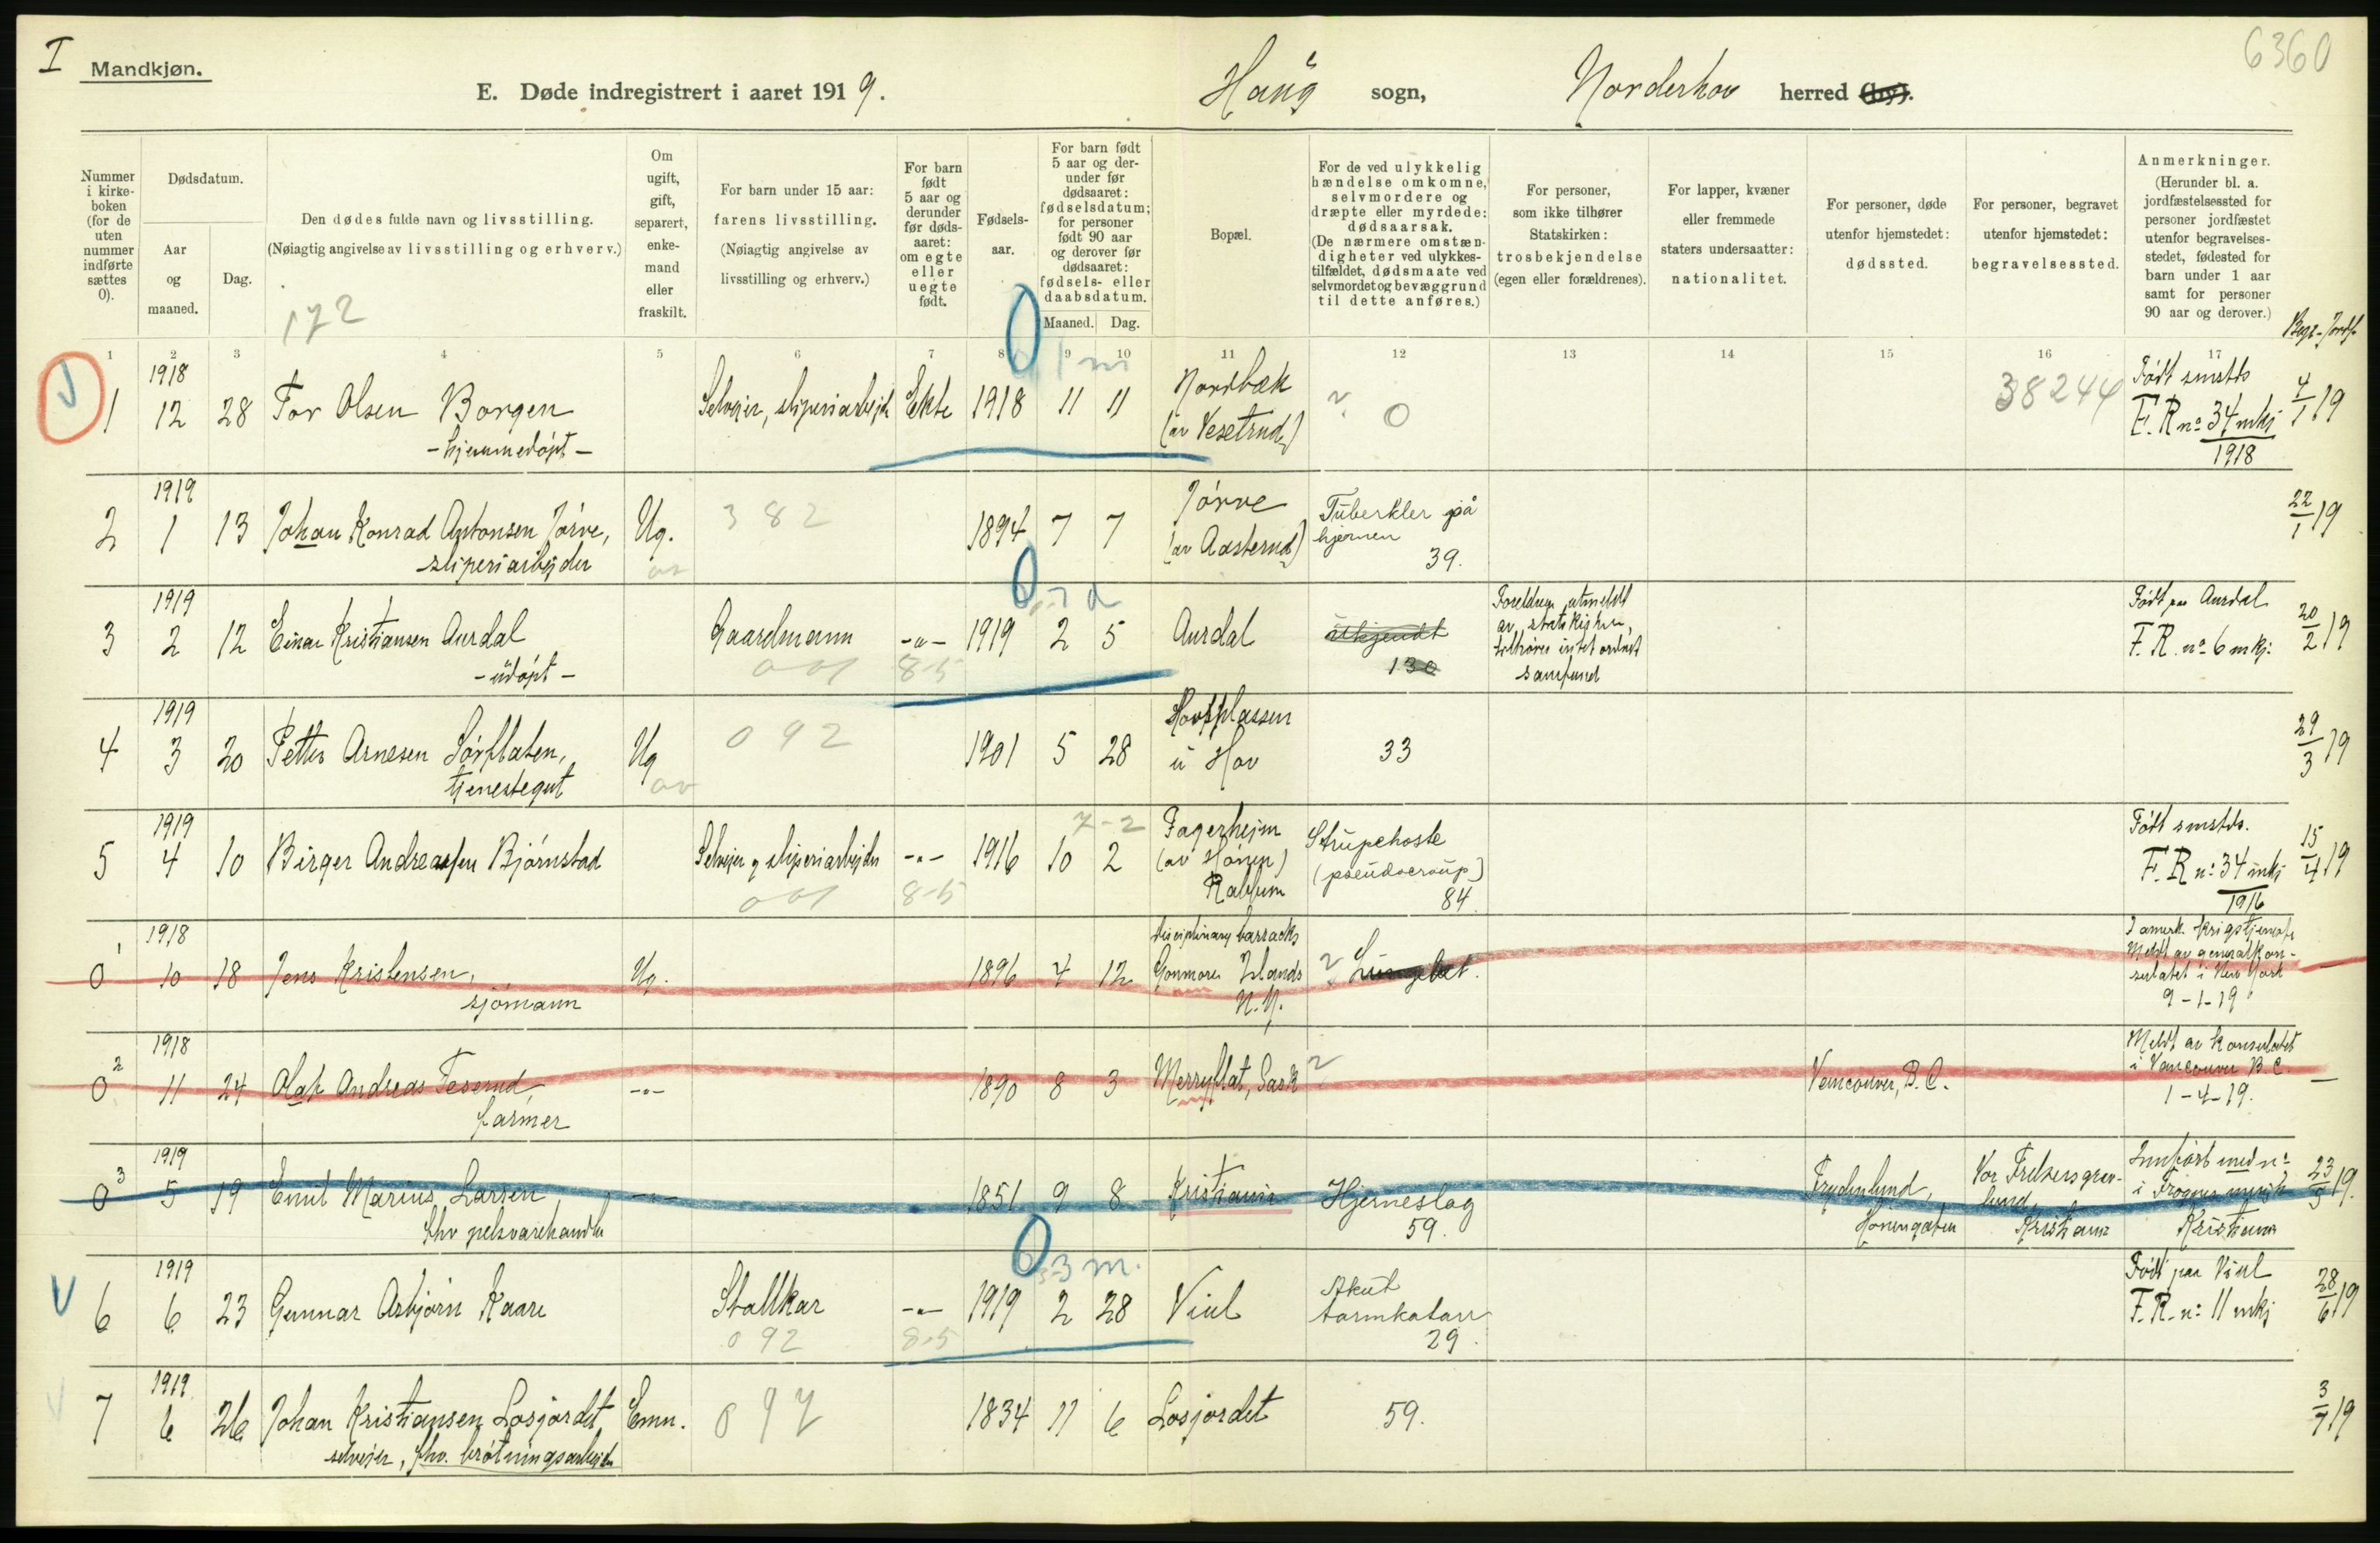 I Mandkjøn.
6360
E. Døde indregistrert i aaret 1919. Haug sogn, Norderhov herred (by).
Nummer i kirkeboken (for de uten nummer indførte sættes 0).
Dødsdatum.
Aar og maaned.
Dag.
Den dødes fulde navn og livsstilling.
(Nøiagtig angivelse av livsstilling og erhverv.)
172
Om ugift, gift, separert, enkemand eller fraskilt.
For barn under 15 aar: farens livsstilling.
(Nøiagtig angivelse av livsstilling og erhverv.)
For barn født 5 aar og derunder før dødsaaret: om egte eller uegte født.
Fødselsaar.
For barn født 5 aar og derunder før dødsaaret: fødselsdatum; for personer født 90 aar og derover før dødsaaret: fødsels- eller daabsdatum.
Maaned. Dag.
Bopæl.
For de ved ulykkelig hændelse omkomne, selvmordere og dræpte eller myrdede: dødsaarsak.
(De nærmere omstændigheter ved ulykkestilfældet, dødsmaate ved selvmordet og bevæggrund til dette anføres.)
For personer, som ikke tilhører Statskirken: trosbekjendelse (egen eller forældrenes).
For lapper, kvæner eller fremmede staters undersaatter: nationalitet.
For personer, døde utenfor hjemstedet: dødssted.
For personer, begravet utenfor hjemstedet: begravelsessted.
Anmerkninger.
(Herunder bl. a. jordfæstelsessted for personer jordfæstet utenfor begravelsesstedet, fødested for barn under 1 aar samt for personer 90 aar og derover.)
Begr.-Jordf.
1 2 3 4 5 6 7 8 9 10 11 12 13 14 15 16 17
1 m
1918
1 12 28 Tor Olsen Borgen Selveier, sliperiarbeider Ekte 1918 11 11 Nordbæk 0 38244 Født smstds 4/1 19
-hjemmedøpt- (av Vesetrud) F. R. no 34 mkj
1918
1919
2 1 13 Johan Konrad Antonsen Jørve, Ug. 382 1894 7 7 Jørve Tuberkler på 22/1 19
sliperiarbeider (av Aasterud) hjernen
39.
1919 7 d
3 2 12 Einar Kristiansen Aurdal Gaardmann -"- 1919 2 5 Aurdal Ukjendt Foreldrene utmeldt av statskirken, tilhører intet ordnet samfund Født paa Aurdal 20/2 19
-udøpt- 001 8-5 130 F. R. no 6 mkj.
1919
4 3 20 Petter Arnesen Sørflaten, Ug 092 1901 5 28 Hovsplassen 33 29/3 19
tjenestegut u Hov
1919 7-2
5 4 10 Birger Andreassen Bjørnstad Selveier og sliperiarbeider -"- 1916 10 2 Fagerheim Strupehoste Født smstds. 15/4 19
001 8-5 (av Hønen) (pseudocroup) F. R. no 34 mkj
84 1916
1918 disciplinary barracks I amerk. krigstjeneste
0 1 10 18 Jens Kristensen, Ug. 1896 4 12 Lungebet. Meldt av generalkonsulatet i New York
sjømann N.Y. 9-1-19
1918
0 2 11 24 Olaf Andreas Teserud, -"- 1890 8 3 Merryflat, Sask Vancouver, B.C. Meldt av konsulatet i Vancouver B.C. —
farmer 1-4-19.
1919
0 3 5 19 Emil Marius Larsen, -"- 1851 9 8 Kristiania Hjerneslag Frydenlund, Vor Frelsers gravlund, Innført med no 23/5 19.
fhv pelsvarehandler 59. Hønengaten Kristiania i Frogner menigh. Kristiania
1919 3 m.
6 6 23 Gunnar Asbjørn Kaare Stallkar -"- 1919 2 28 Viul Akut Født paa Viul 28/6 19
092 8-5 tarmkatarr F. R. no 11 mkj
29.
1919
7 6 26 Johan Kristiansen Losjordet Emn. 097 1834 11 6 Losjordet 59. 3/7 19
selveier, fhv. brøtningsarbeider